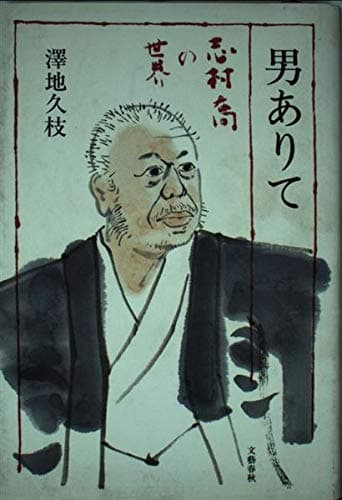 男ありて
志村喬
の
世界
澤地久枝
文藝春秋